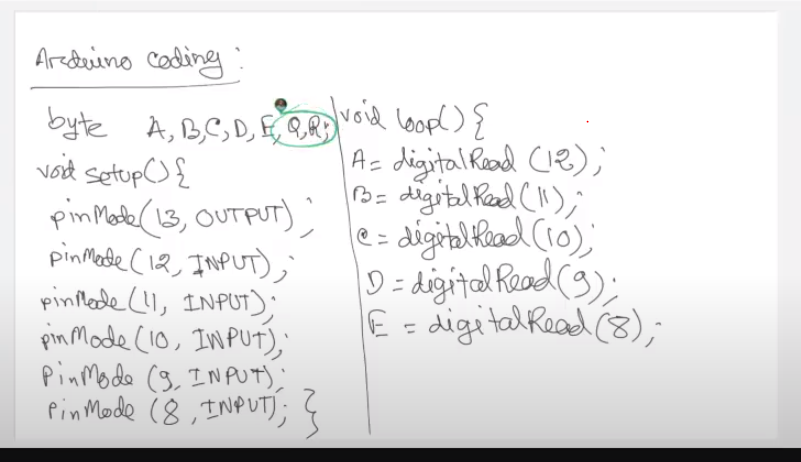 Arduino coding :
byte A, B, C, D, E, Q, R;
void setup() {
pinMode(13, OUTPUT);
pinMode(12, INPUT);
pinMode(11, INPUT);
pinMode(10, INPUT);
PinMode (9, INPUT);
PinMode (8, INPUT); }
void loop() {
A = digitalRead (12);
B = digitalRead (11);
C = digitalRead (10);
D = digitalRead (9);
E = digitalRead (8);